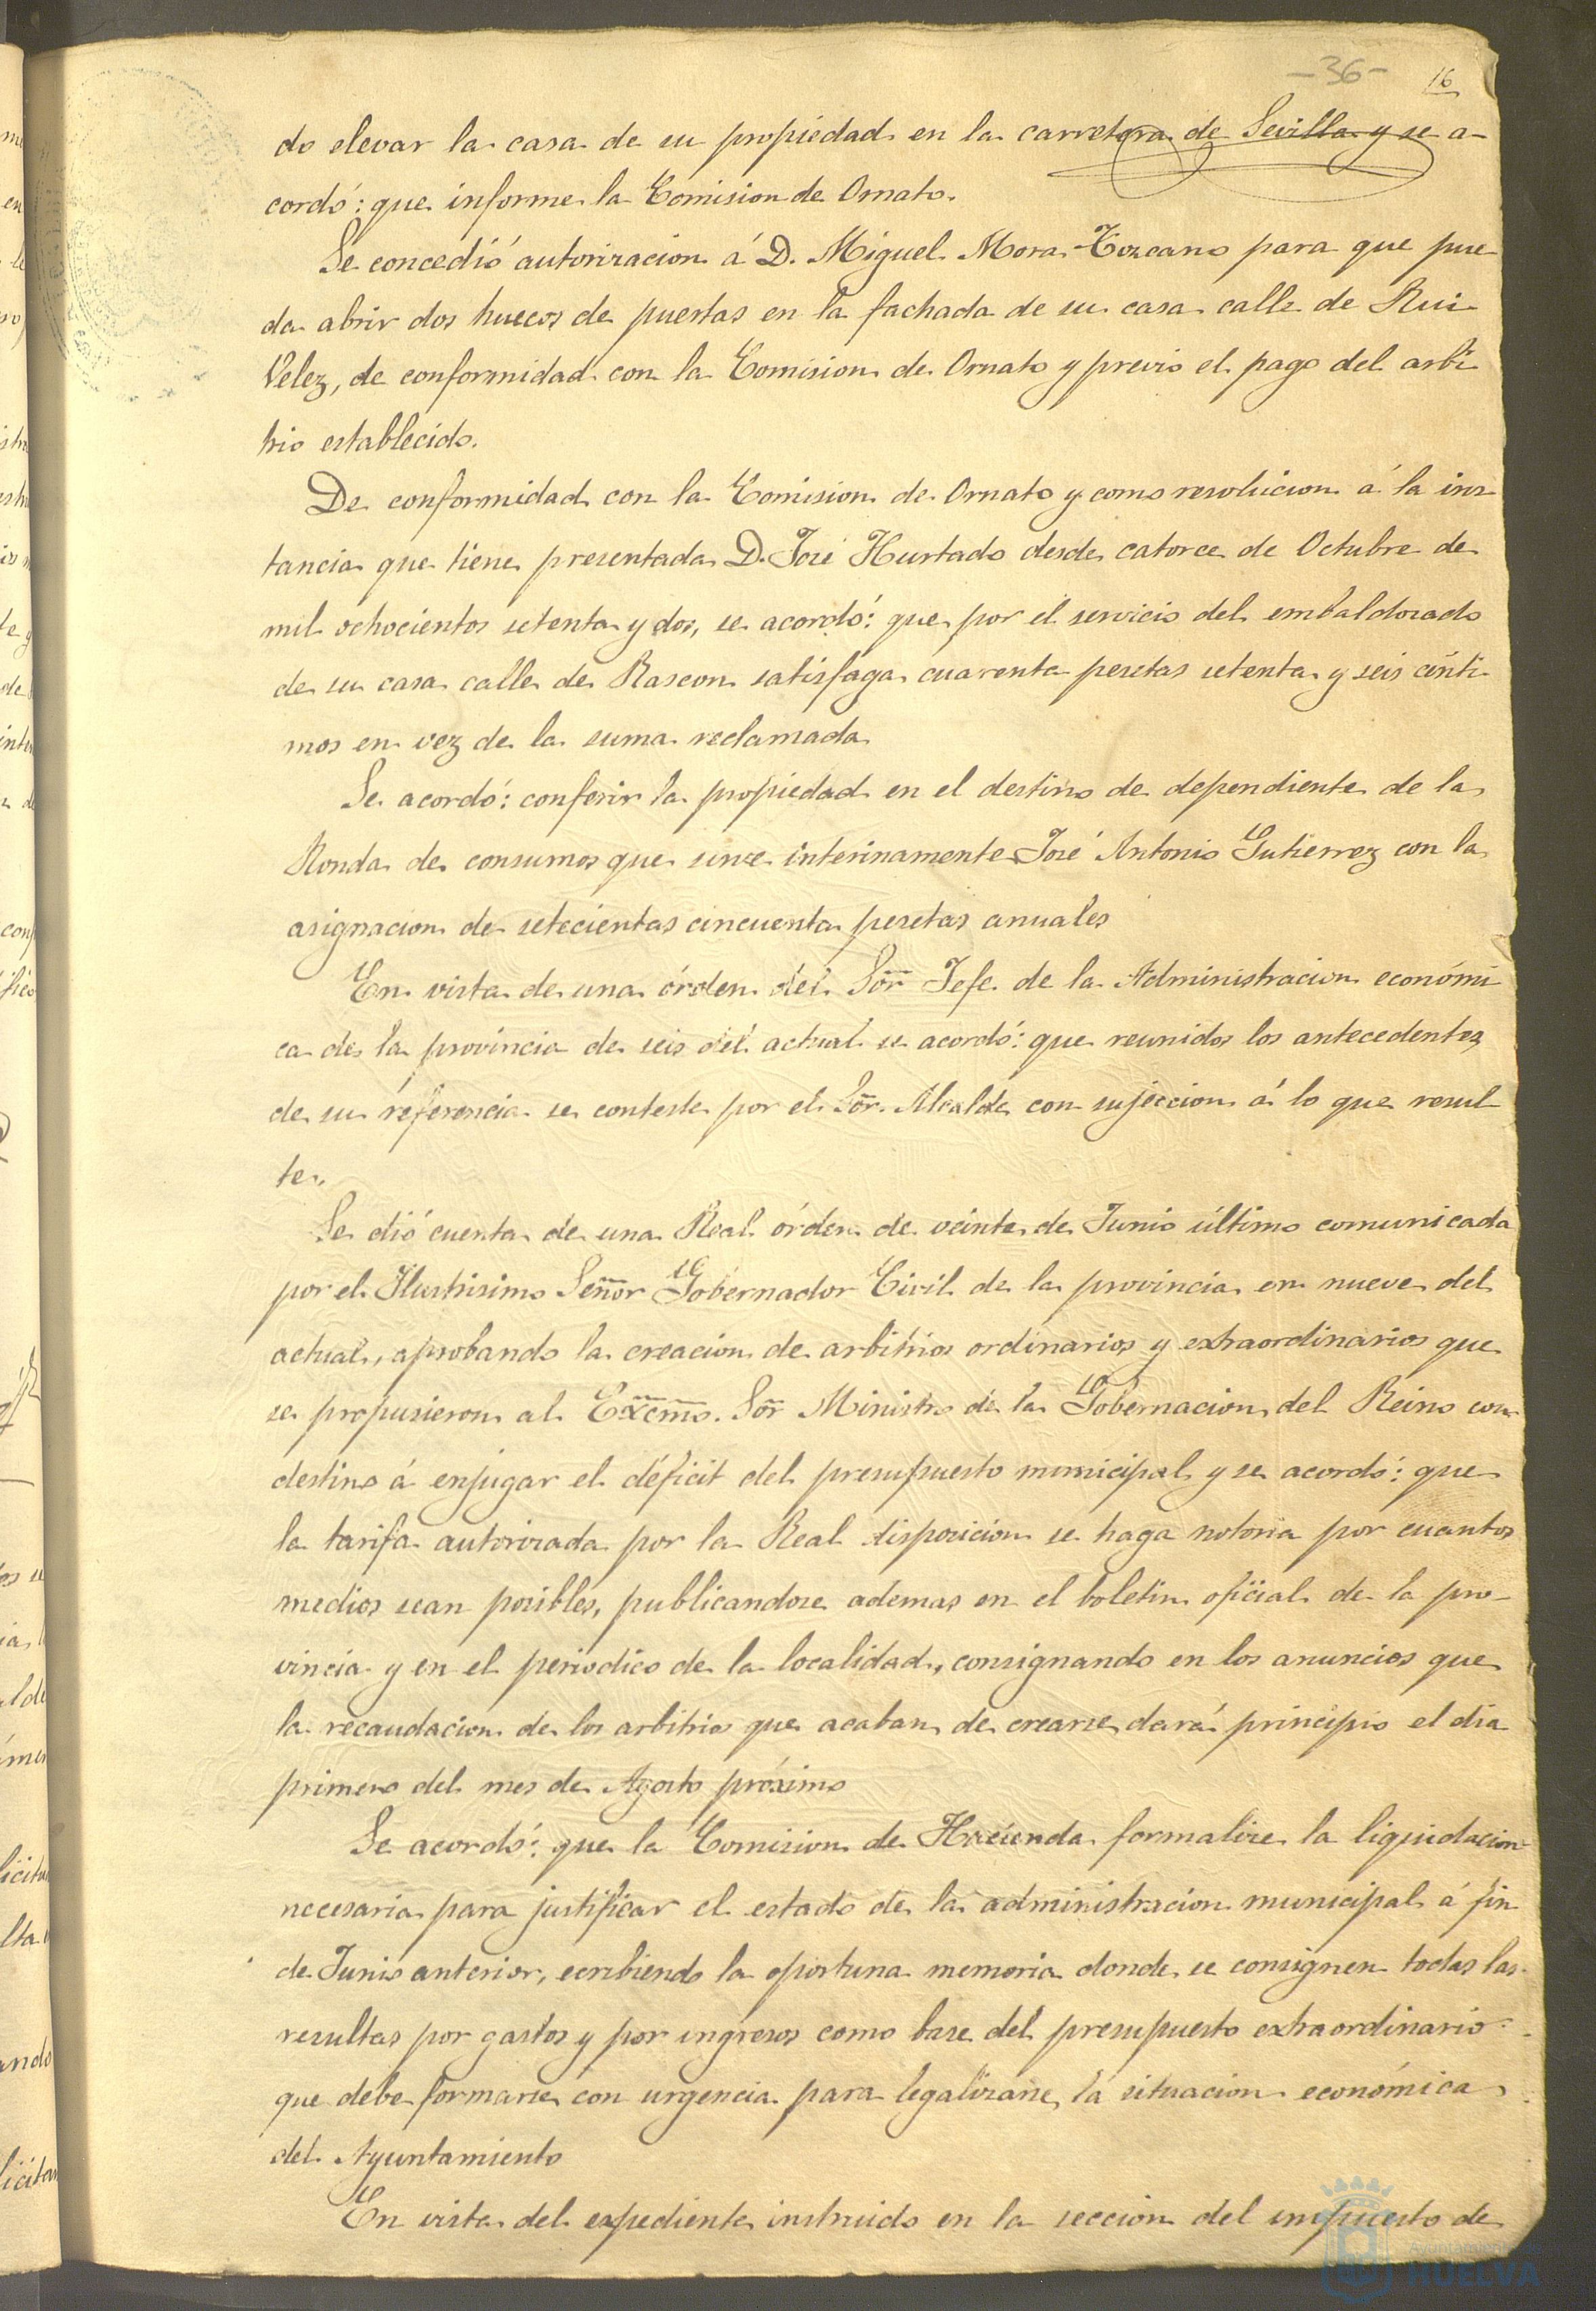 -36- 16
do elevar la casa de su propiedad en la carretera de Sevilla y se a-
cordó: que informe la Comision de Ornato.
Se concedió autorizacion á D. Miguel Mora Tozcano para que pue
da abrir dos huecos de puertas en la fachada de su casa calle de Rui
Velez, de conformidad con la Comision de Ornato y previo el pago del arbi
trio establecido.
De conformidad con la Comision de Ornato y como resolucion á la ins
tancia que tiene presentada D. José Hurtado desde catorce de Octubre de
mil ochocientos setenta y dos, se acordó: que por el servicio del embaldosado
de su casa calle de Rascon satisfaga cuarenta pesetas setenta y seis cénti
mos en vez de la suma reclamada
Se acordó: conferir la propiedad en el destino de dependiente de la
Ronda de consumos que sirve interinamente José Antonio Gutierrez con la
asignacion de setecientas cincuenta pesetas anuales
En vista de una órden del Sor Jefe de la Administracion económi
ca de la provincia de seis del actual se acordó: que reunidos los antecedentes
de su referencia se conteste por el Sor. Alcalde con sujeccion á lo que resul
te.
Se dió cuenta de una Real órden de veinte de Junio último comunicada
por el Ilustrisimo Señor Gobernador Civil de la provincia en nueve del
actual, aprobando la creacion de arbitrios ordinarios y extraordinarios que
se propusieron al Excmo. Sor Ministro de la Gobernacion del Reino con
destino á enjugar el déficit del presupuesto municipal y se acordó: que
la tarifa autorizada por la Real disposicion se haga notoria por cuantos
medios sean posibles, publicandose ademas en el boletin oficial de la pro-
vincia y en el periodico de la localidad, consignando en los anuncios que
la recaudacion de los arbitrios que acaban de crearse dará principio el dia
primero del mes de Agosto próximo
Se acordó: que la Comision de Hacienda formalice la liquidacion
necesaria para justificar el estado de la administracion municipal á fin
de Junio anterior, escribiendo la oportuna memoria donde se consignen todas las
resultas por gastos y por ingresos como base del presupuesto extraordinario
que debe formarse con urgencia para legalizarse la situacion económica
del Ayuntamiento
En vista del expediente instruido en la seccion del impuesto de
Ayuntamiento de
HUELVA